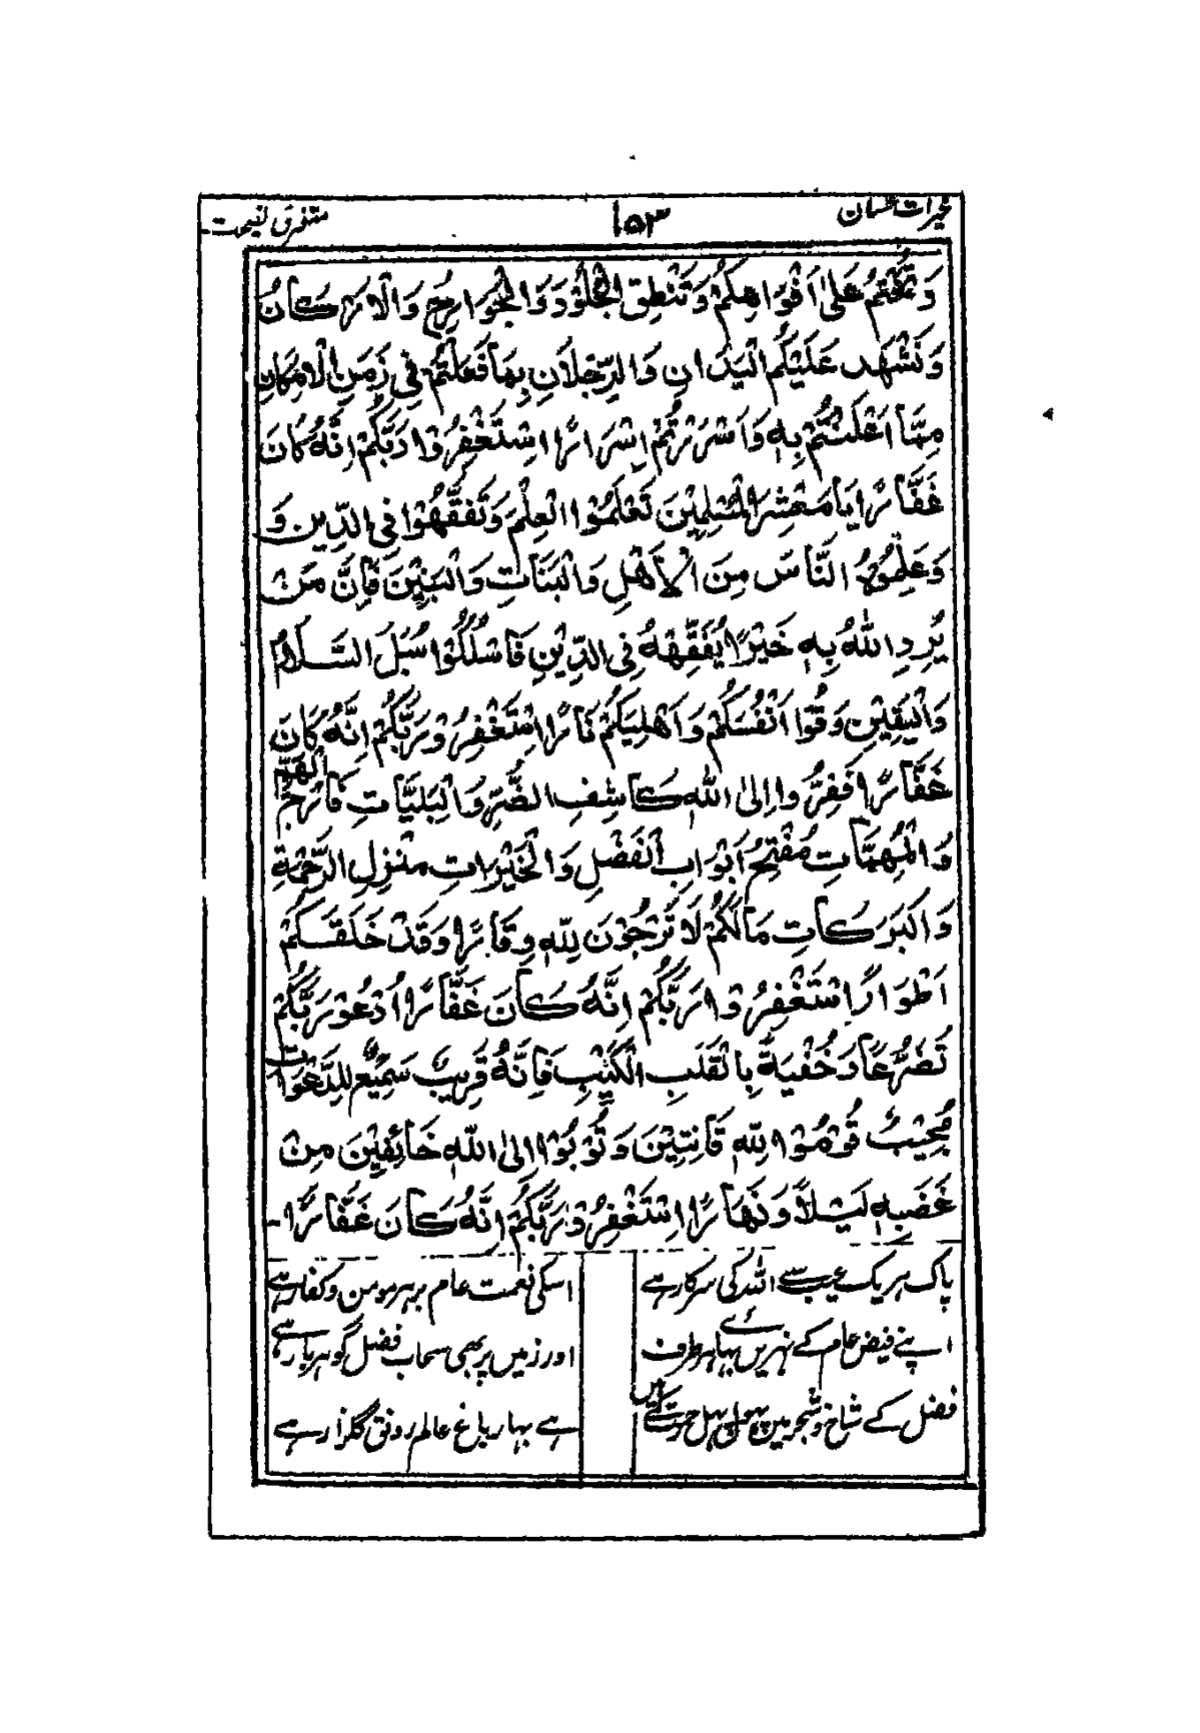 خیرات حسان ۱۵۳ متفرق نصیحت
وَتَخْتِمُ عَلٰی اَفْوَاهِكُمْ وَتَنْطِقُ الْجُلُوْدُ وَالْجَوَارِحُ وَالْاَرْكَانُ
وَتَشْهَدُ عَلَيْكُمُ الْيَدَانِ وَالرِّجْلَانِ بِمَا فَعَلْتُمْ فِيْ زَمَنِ الْاِمْكَانِ
مِمَّا اَعْلَنْتُمْ بِهٖ وَاَسْرَرْتُمْ اِسْرَارًا اِسْتَغْفِرُوْا رَبَّكُمْ اِنَّهٗ كَانَ
غَفَّارًا يَا مَعْشَرَ الْمُسْلِمِيْنَ تَعَلَّمُوا الْعِلْمَ وَتَفَقَّهُوْا فِي الدِّيْنِ وَ
وَعَلِّمُوْهُ النَّاسَ مِنَ الْاَهْلِ وَالْبَنَاتِ وَالْبَنِيْنَ فَاِنَّ مَنْ
يُّرِدِ اللّٰهُ بِهٖ خَيْرًا يُّفَقِّهْهُ فِي الدِّيْنِ فَاسْلُكُوْا سُبُلَ السَّلَامِ
وَالْيَقِيْنِ وَقُوْا اَنْفُسَكُمْ وَاَهْلِيْكُمْ نَارًا اِسْتَغْفِرُوْ رَبَّكُمْ اِنَّهٗ كَانَ
غَفَّارًا فَفِرُّوا اِلَى اللّٰهِ كَاشِفِ الضُّرِّ وَالْبَلِيَّاتِ فَارِجِ الْهَمِّ
وَالْمُهِمَّاتِ مُفْتِحِ اَبْوَابِ الْفَضْلِ وَالْخَيْرَاتِ مُنْزِلِ الرَّحْمَةِ
وَالْبَرَكَاتِ مَا لَكُمْ لَا تَرْجُوْنَ لِلّٰهِ وَقَارًا وَقَدْ خَلَقَكُمْ
اَطْوَارًا اِسْتَغْفِرُوْا رَبَّكُمْ اِنَّهٗ كَانَ غَفَّارًا اُدْعُوْ رَبَّكُمْ
تَضَرُّعًا وَخُفْيَةً بِالْقَلْبِ الْكَئِيْبِ فَاِنَّهٗ قَرِيْبٌ سَمِيْعٌ لِلدَّعْوَاتِ
مُجِيْبٌ قُوْمُوْا لِلّٰهِ قَانِتِيْنَ وَتُوْبُوْا اِلَى اللّٰهِ خَائِفِيْنَ مِنْ
غَضَبِهٖ لَيْلًا وَنَهَارًا اِسْتَغْفِرُوْ رَبَّكُمْ اِنَّهٗ كَانَ غَفَّارًا۔
پاک ہر یک عیب سے اللہ کی سرکار ہے اسکی نعمت عام بر ہر مومن و کفار ہے
اپنے فیض عام کے نہریں بہائے ہر طرف اور زمیں پر بھی سحاب فضل گوہر بار ہے
فضل کے شاخ و شجر میں پھول پھل ہے بہار باغ عالم رونق گلزار ہے